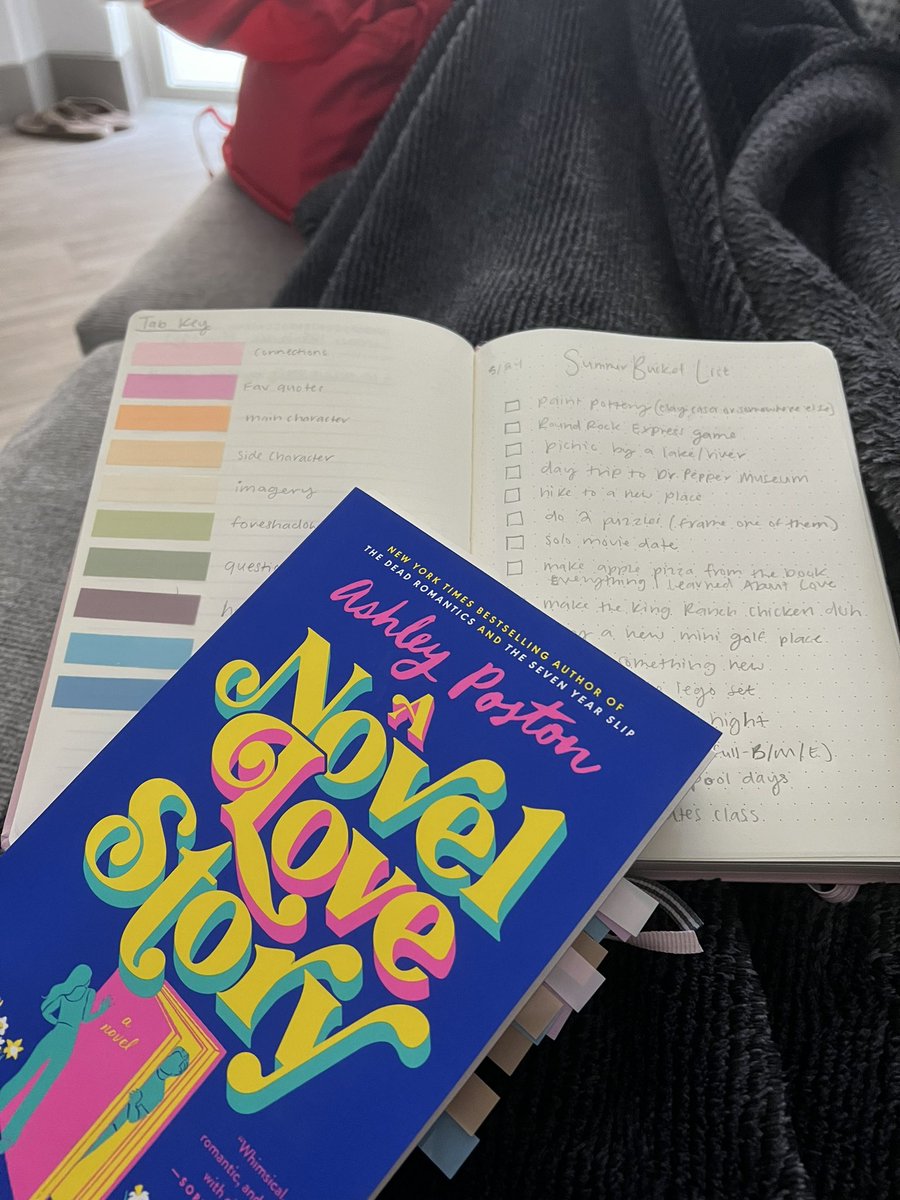 Tab Key
connections
Fav quotes
main character
side character
imagery
foreshado
questi
h
5/24
Summer Bucket List
paint pottery (clay casa or somewhere else)
Round Rock Express game
picnic by a lake/river
day trip to Dr. Pepper Museum
hike to a new place
do 2 puzzles (frame one of them)
solo movie date
make apple pizza from the book
Everything I Learned About Love
make the King Ranch chicken duh.
a new mini golf place
something new
lego set
night
full-B/M/E)
pool days
ates class
NEW YORK TIMES BESTSELLING AUTHOR OF
THE DEAD ROMANTICS AND THE SEVEN YEAR SLIP
Ashley Poston
A
Novel
Love
Story
a
novel
"Whimsical
romantic, and
with
—SOP